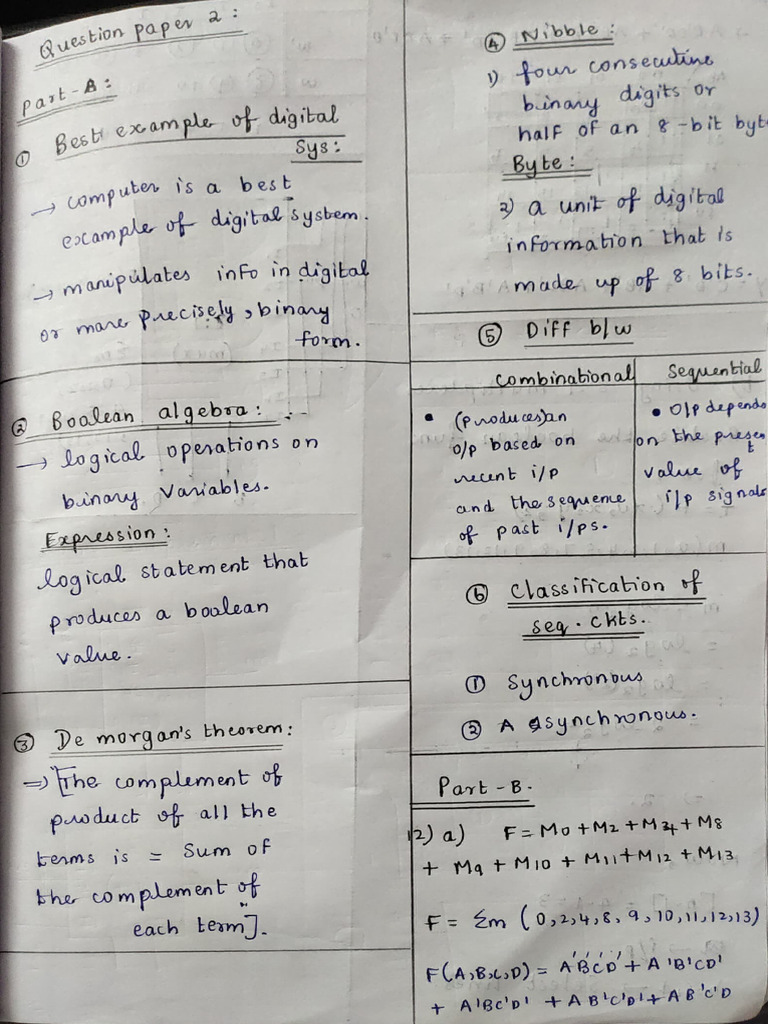 Question paper 2 :
Part-A :
① Best example of digital
Sys :
→ computer is a best
example of digital system.
→ manipulates info in digital
or more precisely, binary
form.
② Boolean algebra :
→ logical operations on
binary variables.
Expression :
logical statement that
produces a boolean
value.
③ De morgan's theorem :
⇒ [The complement of
product of all the
terms is = Sum of
the complement of
each term].
④ Nibble :
1) four consecutine
binary digits or
half of an 8-bit byte
Byte :
2) a unit of digital
information that is
made up of 8 bits.
⑤ Diff b/w
Combinational
• (produces) an
o/p based on
recent i/p
and the sequence
of past i/ps.
Sequential
• O/p depends
on the present
value of
i/p signals
⑥ Classification of
seq. ckts.
① Synchronous
② Asynchronous.
Part-B.
12) a) F = M0 + M2 + M4 + M8
+ M9 + M10 + M11 + M12 + M13
F = Σm (0,2,4,8,9,10,11,12,13)
F(A,B,C,D) = A'B'C'D' + A'B'CD'
+ A'BC'D' + AB'C'D' + AB'C'D